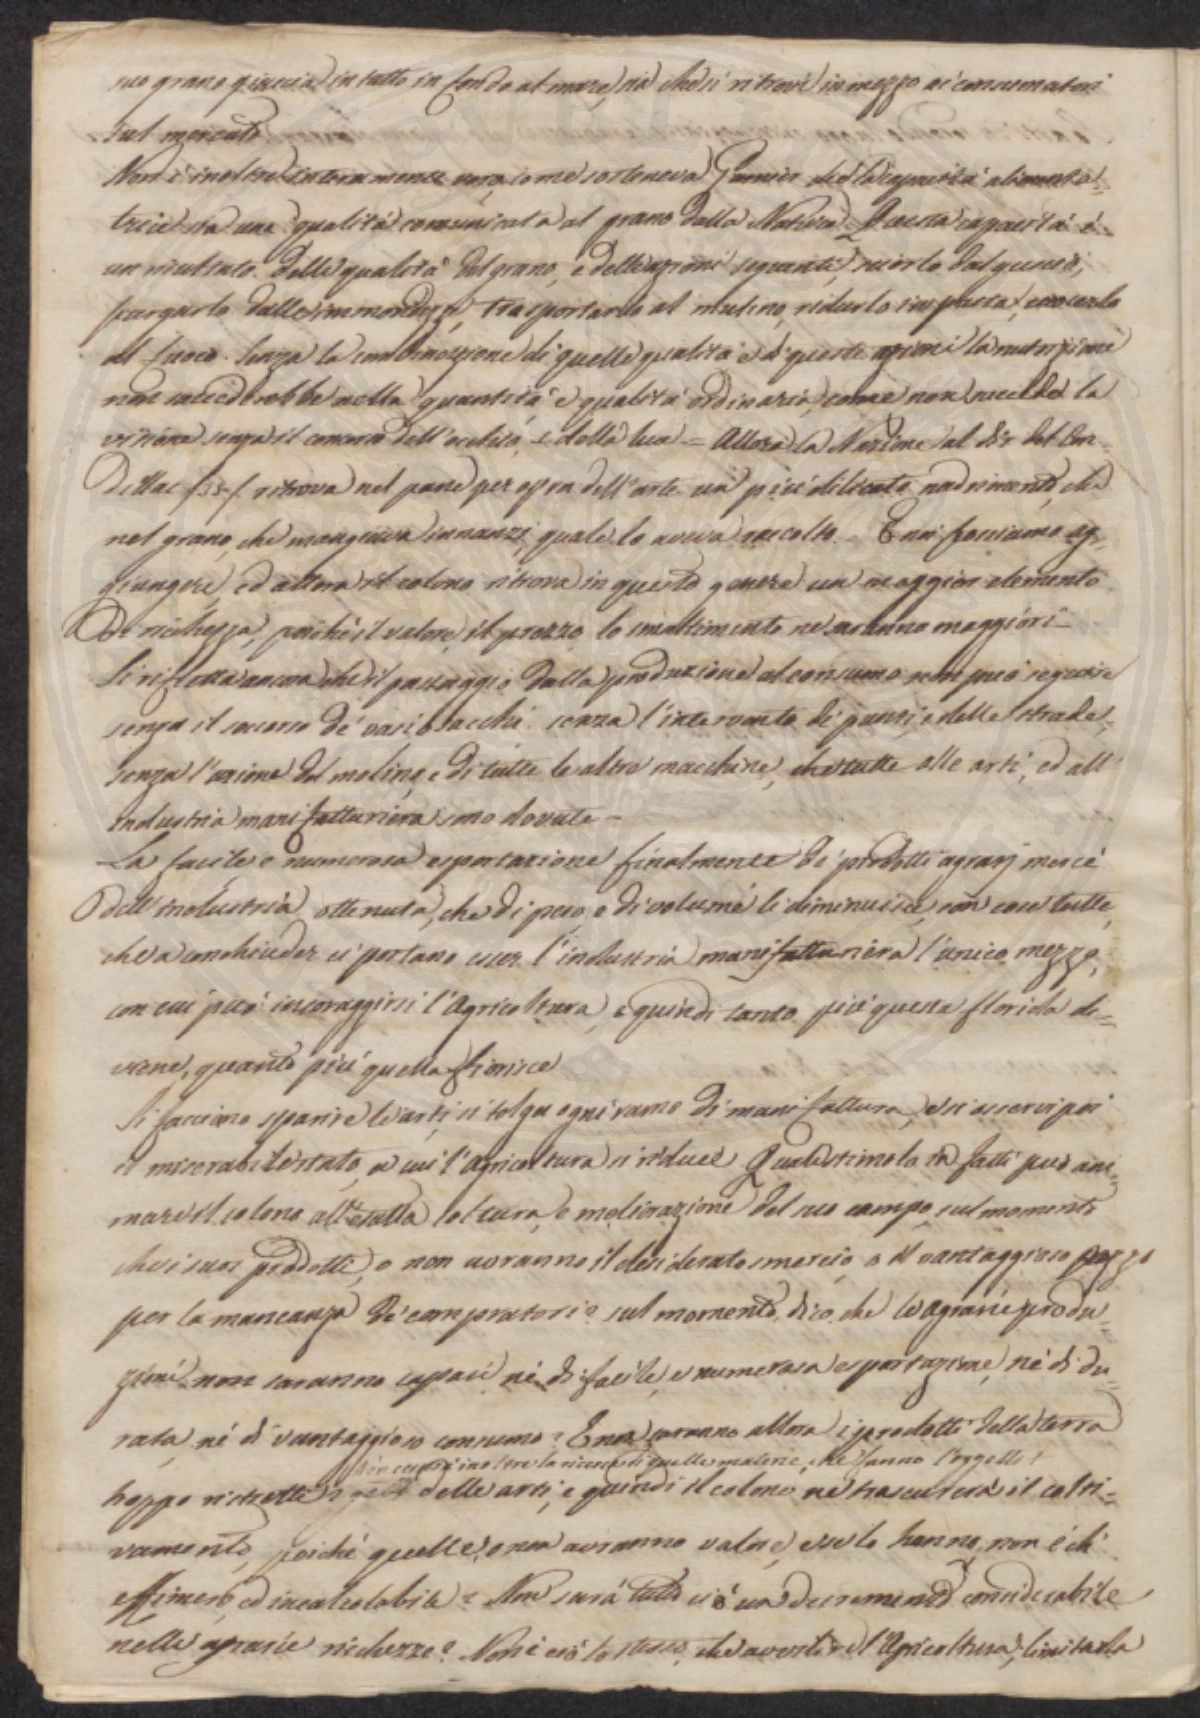 suo grano giaccia in tutto in fondo al mare, sia che si ritrovi in mezzo ai consumatori
sul mercato
Non è inoltre interamente vero, come sosteneva Garnier che la capacità alimenta-
trice sia una qualità comunicata al grano dalla Natura. Questa capacità è
un risultato delle qualità del grano, e delle azioni seguenti, trarlo dal guscio,
purgarlo dalle immondezze, trasportarlo al mulino, ridurlo in pasta, cuocerlo
al fuoco. Senza la combinazione di quelle qualità e di queste azioni la nutrizione
non succederebbe nella quantità e qualità ordinaria, come non succede la
visione senza il concorso dell'occhio, e della luce = Allora la Nazione al dir del Con-
dillac (35) ritrova nel pane per opra dell'arte un più delicato nudrimento, che
nel grano, che mangiava innanzi, quale lo aveva raccolto. E noi possiamo ag-
giungere, ed allora il colono ritrova in questo genere un maggior elemento
di ricchezza, poiché il valore, il prezzo, lo smaltimento ne saranno maggiori -
Si rifletta ancora che il passaggio dalla produzione al consumo non può seguire
senza il soccorso de' vasi, o sacchi, senza l'intervento de' ponti, e delle strade,
senza l'azione del molino, e di tutte le altre macchine, che tutte alle arti, ed all'
industria manifatturiera sono dovute -
La facile e numerosa esportazione finalmente de' prodotti agrarj mercè
dell'industria ottenuta, che di peso, e di volume li diminuisce, son cose tutte,
che a conchiuder ci portano esser l'industria manifatturiera l'unico mezzo,
con cui può incoraggirsi l'Agricoltura, e quindi tanto più questa florida di-
viene, quanto più quella fiorisce
Si facciano sparire le arti, si tolga ogni ramo di manifattura, e si osservi poi
il miserabile stato, a cui l'Agricoltura si riduce. Quale stimolo in fatti può ani-
mare il colono all'esatta coltura, e meliorazione del suo campo, sul momento
che i suoi prodotti, o non avranno il desiderato smercio, o il vantaggioso prezzo
per la mancanza de' compratori? sul momento, dico, che le agrarie produ-
zioni non saranno capaci nè di facile, e numerosa esportazione, nè di du-
rata, nè di vantaggioso consumo? E non saranno allora i prodotti della terra
Non cesserà inoltre la ricerca di quelle materie, che fanno l'oggetto
troppo ristretti? delle arti, e quindi il colono ne trascurerà il colti-
vamento, poiché quelle, o non avranno valore, o se lo hanno, non è ch'
effimero, ed incalcolabile? Non sarà tutto ciò un decremento considerabile
nelle agrarie ricchezze? Non è ciò lo stesso, che avvilir l'Agricoltura, limitarla